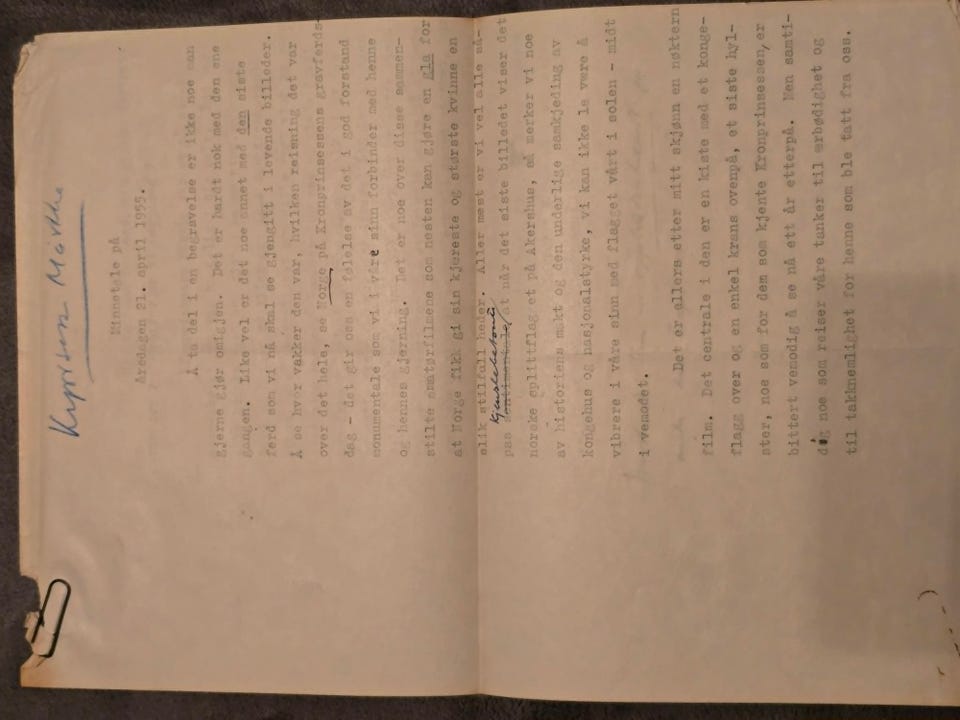 Kronprinsesse Märtha
Minnetale på
årsdagen 21. april 1955.
Å ta del i en begravelse er ikke noe man
gjerne gjør omigjen. Det er hardt nok med den ene
gangen. Like vel er det noe annet med den siste
ferd som vi nå skal se gjengitt i levende billeder.
Å se hvor vakker den var, hvilken reisning det var
over det hele, se Norge på Kronprinsessens gravferds-
dag - det gir oss en følelse av det i god forstand
monumentale som vi i våre sinn forbinder med henne
og hennes gjerning. Det er noe over disse sammen-
stilte amatørfilmene som nesten kan gjøre en gla for
at Norge fikk gi sin kjæreste og største kvinne en
slik stilfull heder. Aller mest er vi vel alle så-
pass sentimentale/ at når det siste billedet viser det
kjenslebetonte
norske splittflag et på Akershus, så merker vi noe
av historiens makt og den underlige samkjeding av
kongehus og nasjonalstyrke, vi kan ikke la være å
vibrere i våre sinn med flagget vårt i solen - midt
i vemodet.
Det er ellers etter mitt skjønn en nøktern
film. Det centrale i den er en kiste med et konge-
flagg over og en enkel krans ovenpå, et siste hyl-
ster, noe som for dem som kjente Kronprinsessen, er
bittert vemodig å se nå ett år etterpå. Men samti-
dig noe som reiser våre tanker til ærbødighet og
til takknemlighet for henne som ble tatt fra oss.